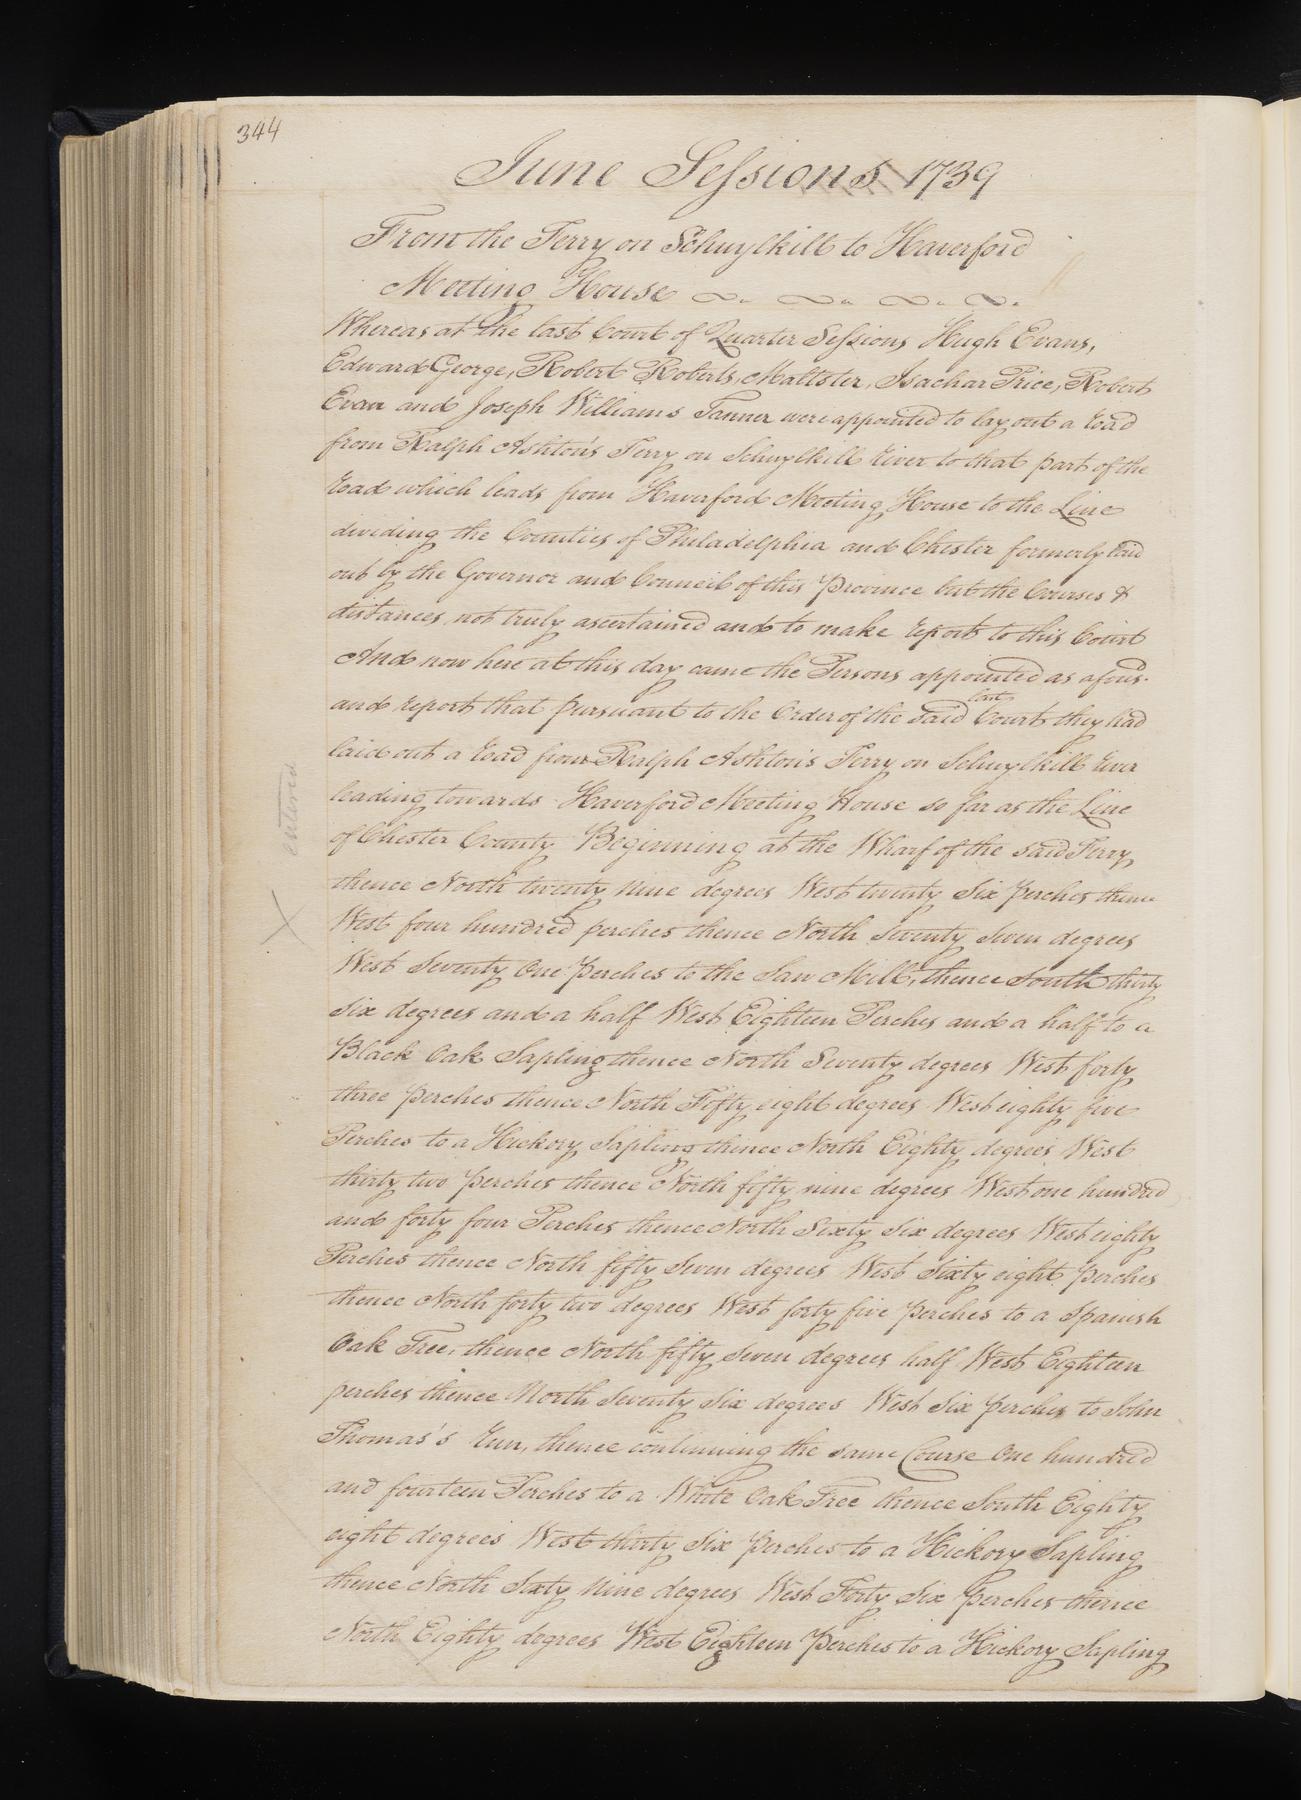 344
June Sessions 1739
From the Ferry on Schuylkill to Haverford
Meeting House
Whereas at the last Court of Quarter Sessions Hugh Evans,
Edward George, Robert Roberts, Maltster, Isachar Price, Robert
Evan and Joseph Williams Tanner were appointed to lay out a road
from Ralph Ashton's Ferry on Schuylkill River to that part of the
Road which leads from Haverford Meeting House to the Line
dividing the Counties of Philadelphia and Chester formerly laid
out by the Governor and Council of this Province but the Courses &
distances not truly ascertained and to make report to this Court
And now here at this day came the Persons appointed as afousd.
and report that pursuant to the Order of the said last Court they had
laid out a road from Ralph Ashton's Ferry on Schuylkill River
leading towards Haverford Meeting House so far as the Line
of Chester County Beginning at the Wharf of the said Ferry,
thence North twenty nine degrees West twenty Six perches thence
West four hundred perches thence North Seventy Seven degrees
West Seventy One perches to the Saw Mill, thence South thirty
Six degrees and a half West Eighteen Perches and a half to a
Black Oak Sapling thence North Seventy degrees West forty
three perches thence North Fifty eight degrees West eighty five
Perches to a Hickory Sapling thence North Eighty degrees West
thirty two perches thence North fifty nine degrees West one hundred
and forty four Perches thence North Sixty Six degrees West eighty
Perches thence North fifty Seven degrees West Sixty eight perches
thence North forty two degrees West forty five perches to a Spanish
Oak Tree, thence North fifty Seven degrees half West Eighteen
perches thence North Seventy Six degrees West Six perches to John
Thomas's Run, thence continuing the same Course One hundred
and fourteen Perches to a White Oak Tree thence South Eighty
eight degrees West thirty Six perches to a Hickory Sapling
thence North Sixty Nine degrees West Forty Six perches thence
North Eighty degrees West Eighteen perches to a Hickory Sapling
entered